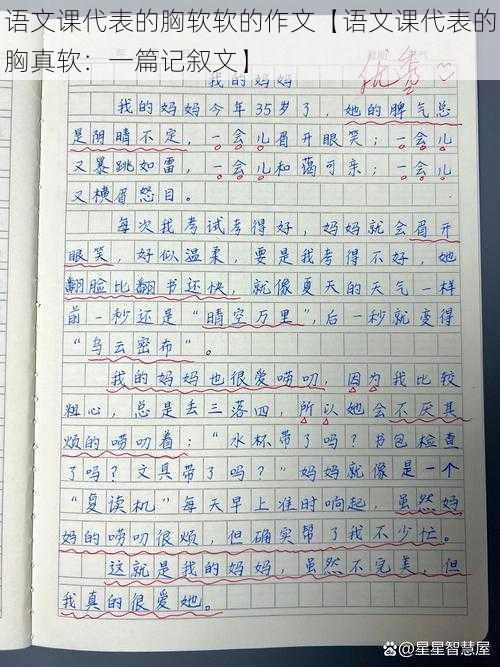 语文课代表的胸软软的作文【语文课代表的
胸真软：一篇记叙文】
优秀
我的妈妈
我的妈妈今年35岁了，她的脾气总
是阴晴不定，一会儿眉开眼笑；一会儿
又暴跳如雷，一会儿和蔼可亲；一会儿
又横眉怒目。
每次我考试考得好，妈妈就会眉开
眼笑，好似温柔，要是我考得不好，她
翻脸比翻书还快，就像夏天的天气一样
前一秒还是“晴空万里”，后一秒就变得
“乌云密布”。
我的妈妈也很爱唠叨，因为我比较
粗心，总是丢三落四，所以她会不厌其
烦的唠叨着：“水杯带了吗？书包检查
了吗？文具带了吗？”妈妈就像是一个
“复读机”每天早上准时响起，虽然妈
妈的唠叨很烦，但确实帮了我不少忙。
这就是我的妈妈，虽然不完美，但
我真的很爱她。
星星智慧屋